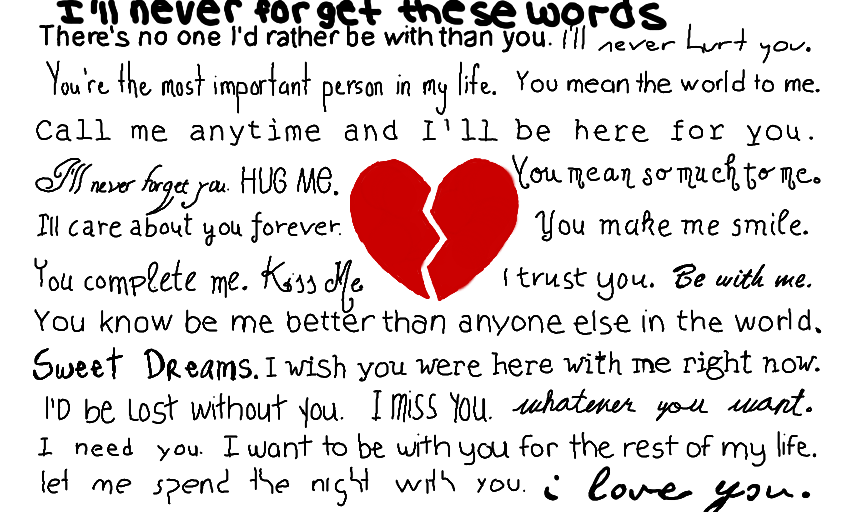 I'll never forget these words
There's no one I'd rather be with than you. I'll never hurt you.
You're the most important person in my life. You mean the world to me.
Call me anytime and I'll be here for you.
I'll never forget you. HUG ME. You mean so much to me.
I'll care about you forever. You make me smile.
You complete me. Kiss Me I trust you. Be with me.
You know be me better than anyone else in the world.
Sweet Dreams. I wish you were here with me right now.
I'D be Lost without You. I MISS YOU. whatever you want.
I need you. I want to be with you for the rest of my life.
let me spend the night with you. i love you.